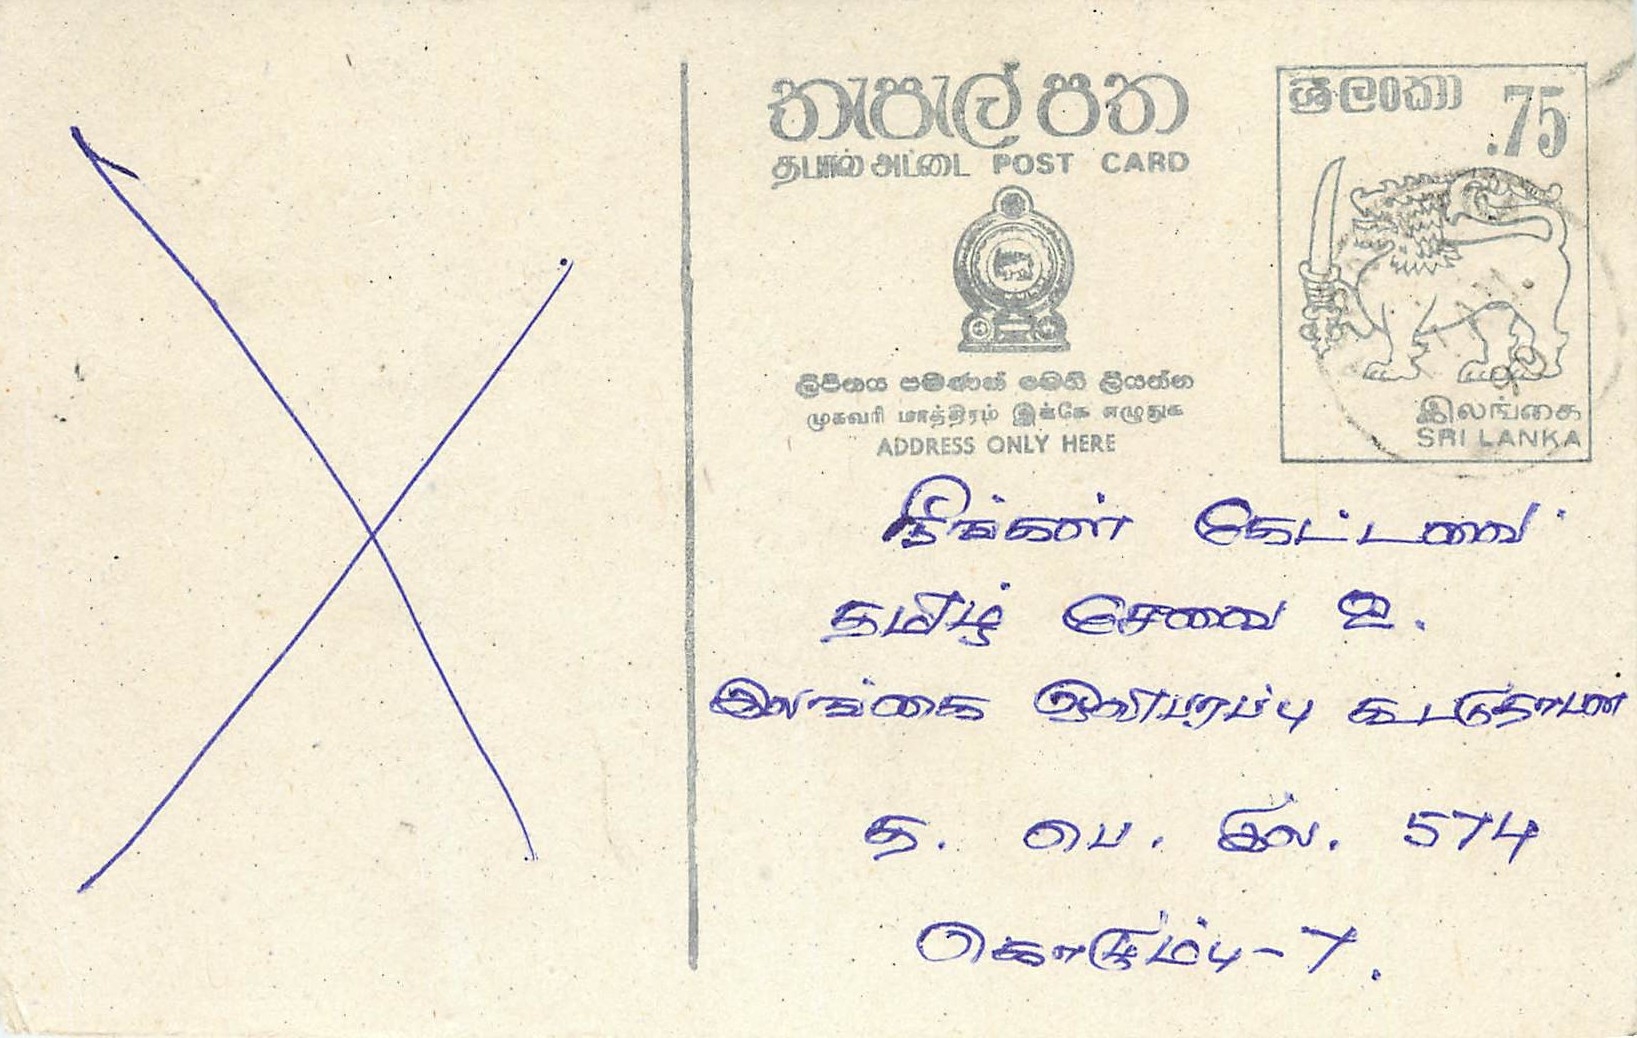 තැපැල් පත
தபால் அட்டை POST CARD
ශ්‍රී ලංකා .75
ලිපිනය පමණක් මෙහි ලියන්න
முகவரி மாத்திரம் இங்கே எழுதுக
ADDRESS ONLY HERE
இலங்கை
SRI LANKA
நீங்கள் கேட்டவை
தமிழ் சேவை உ.
இலங்கை ஒலிபரப்பு
த. பெ. இல. 574
கொழும்பு-7.